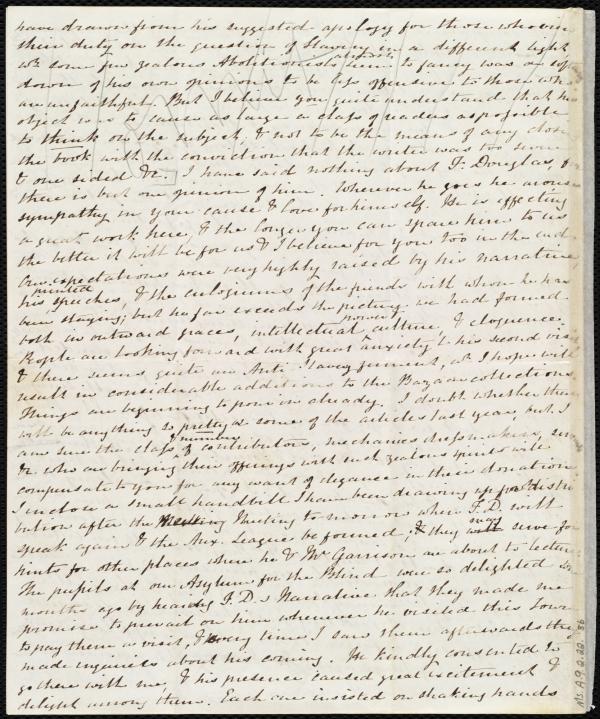 have drawn from his suggested apology for those who view
their duty on the question of Slavery in a different light
wh some few zealous Abolitionists here
almost
to fancy was a
down of his own opinions to be less offensive to those who
are unfaithful. But I believe you quite understand that his
object was to cause as large a class of readers as possible
to think on the subject, & not to be the means of any closing
the book with the conviction that the writer was too severe
& one sided &c. I have said nothing about F. Douglas, for
there is but one opinion of him. Wherever he goes he arouses
sympathy in your cause & love for himself. He is effecting
a great work here, & the longer you can spare him to us
the better it will be for us & I believe for you too in the end.
Our expectations were very highly raised by his narrative,
printed
his speeches, & the eulogiums of the friends with whom he has
been staying; but he far exceeds the picture we had formed
both in outward graces, intellectual power, culture, & eloquence.
People are looking forward with great anxiety to his second visit
& there seems quite an Anti-Slavery ferment, wh I hope will
result in considerable additions to the Bazaar collections.
Things are beginning to pour in already. I doubt whether there
will be anything so pretty as some of the articles last year, but I
am sure the class & number of contributors, mechanics dressmakers,
&c. who are bringing their offerings with such zealous spirits will
compensate to you for any want of elegance in their donations.
I inclose a small handbill I have been drawing up for distri
bution after the Meeting to morrow when F.D. will
speak again & the Aux. League be formed, & they may serve for
hints for other places where he & Mr Garrison are about to lecture.
The pupils at our Asylum for the Blind were so delighted some
months ago by hearing F.D.s Narrative that they made me
promise to prevail on him whenever he visited this Town
to pay them a visit, & every time I saw them afterwards they
made inquiries about his coming. He kindly consented to
go there with me, & his presence caused great excitement &
delight among them. Each one insisted on shaking hands
Ms. A.9.2.22. 36